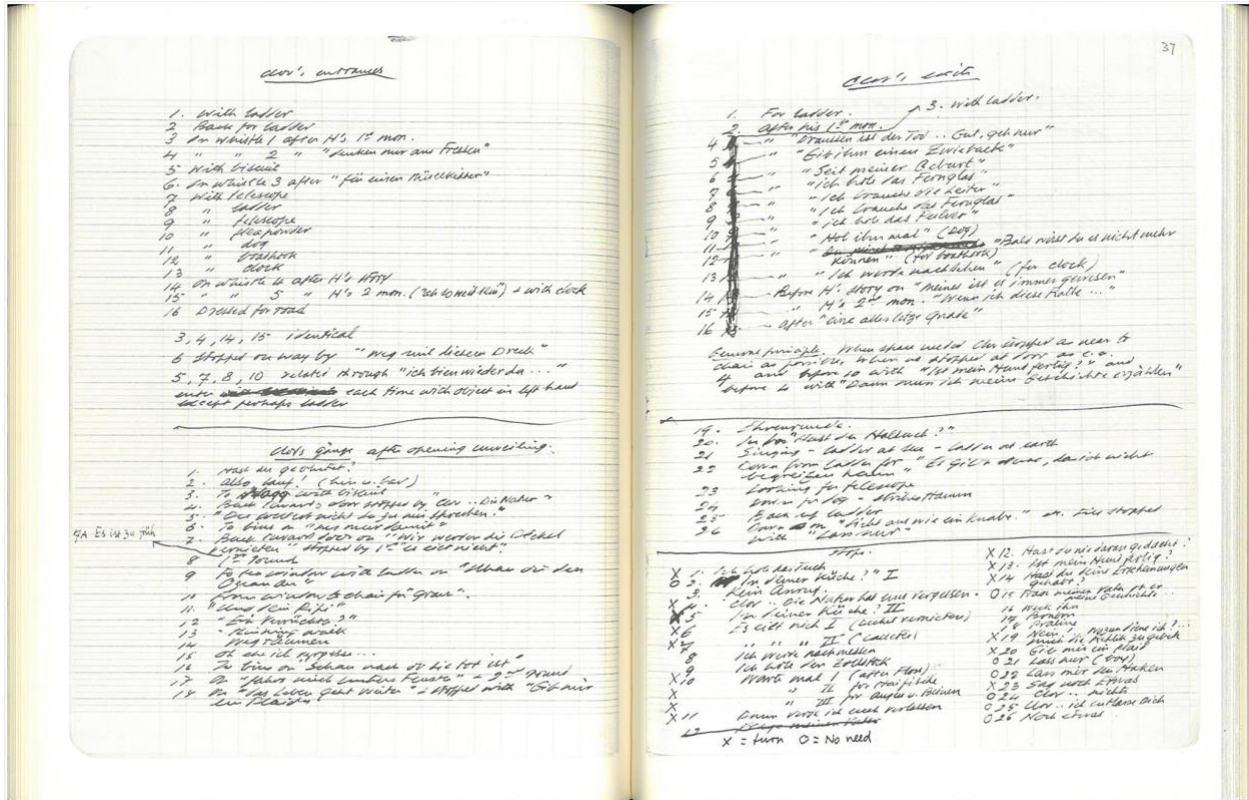 Clov's entrances
1. With ladder
2 Back for ladder
3 On whistle 1 after H's 1st mon.
4 " " 2 " "denken nur ans Fressen"
5 With biscuit
6. On whistle 3 after "für einen
7 With telescope
8 " ladder
9 " telescope
10 " fleapowder
11 " dog
12 " boathook
13 " clock
14 On whistle 4 after H's story
15 " " 5 " H's 2 mon. + with clock
16 Dressed for road
3, 4, 14, 15 identical
6 Stopped on way by "Weg mit diesem Dreck"
5, 7, 8, 10 related through "ich bin wieder da..."
enter each time with object in left hand
except perhaps ladder
Clov's gänge after opening unveiling.
1. Hast du geblutet?
2. Also lauf! (hin u. her)
3. To with biscuit
4. Back towards door stopped by "Clov .. Die Natur"
5. "Du sollst nicht so zu mir sprechen."
6. To bins on
7. Back toward door on "Wir werden die Deckel
vernieten" stopped by 1st "es eilt nicht".
7A Es ist zu früh
8 1st Round
9 To sea window with ladder on "Schau dir den
Ozean an"
10 From window to chair for "Grau".
11. "Und dein Pipi"
12 "Ein Verrückter?"
13
14 Wegräumen
15 Oh ehe ich vergesse...
16 To bins on "Schau nach ob sie tot ist"
17 On Fenster" + 2nd round
18 On "Das Leben geht weiter" + stopped with "Gib mir
ein Plaid"
37
Clov's exits
1. For ladder.
3. With ladder.
2. After his 1st mon.
4 " "Draussen ist der Tod .. Gut, geh nur"
5 " "Gib ihm einen Zwieback"
6 " "Seit meiner Geburt"
7 " "Ich hole das Fernglas"
8 " "Ich brauche die Leiter"
9 " "Ich brauche das Fernglas"
10 " "Ich hole das Pulver"
11 " "Hol ihn mal" (Dog)
12 " "Bald wirst du es nicht mehr
können" (for boathook)
13 " "Ich werde nachsehen" (for clock)
14 Before H's story on "Meines ist es immer gewesen"
15 " H's 2nd mon. "Wenn ich diese Ratte ..."
16 - After "eine allerletzte Gnade"
General principle. When spare needed Clov stopped as near to
chair as possible, when no stopped at door as e.g.
4 and before 10 with "Ist mein Hund fertig?" and
before 14 with "Dann muss ich meine Geschichte erzählen"
19. Ehrenrunde.
20. "Hast du Halsweh?"
21 Singing - ladder at sea - ladder at earth
22 Down from ladder for "Es gibt etwas, das ich nicht
begreifen kann"
23 Looking for telescope
24 Down for dog - strikes Hamm
25 Back up ladder
26 Down on "Sieht aus wie ein Knabe." etc. Tries stopped
with "Lass nur"
Stops.
X 1. Ich hol das Tuch
O 2. In deiner Küche?" I
3. Kein Anruf.
X 4. Clov .. Die Natur hat uns vergessen.
X 5 In deiner Küche? II
X 6 Es eilt nicht I (Deckel vernieten)
X 7 " " " II" (Catheter)
8 Ich werde nachmessen
9 Ich hole den Zollstock
X 10 Warte mal I (after Floh)
X " II for Haifische
X " III for Augen u. Beinen
X 11 Dann werde ich euch verlassen
12
X 12. Hast du nie daran gedacht?
X 13. Ist mein Hund fertig?
X 14 Hast du deine Erscheinungen
gehabt?
O 15
meine Geschichte..
16 Weck ihn
17
18 Praline
X 19 Nein!
X 20 Gib mir ein Plaid
O 21 Lass nur (boy)
O 22 Lass mir den Haken
X 23 Sag noch etwas
O 24 Clov .. nichts
O 25 Clov .. ich entlasse dich
O 26 Noch etwas
X = turn O = No need